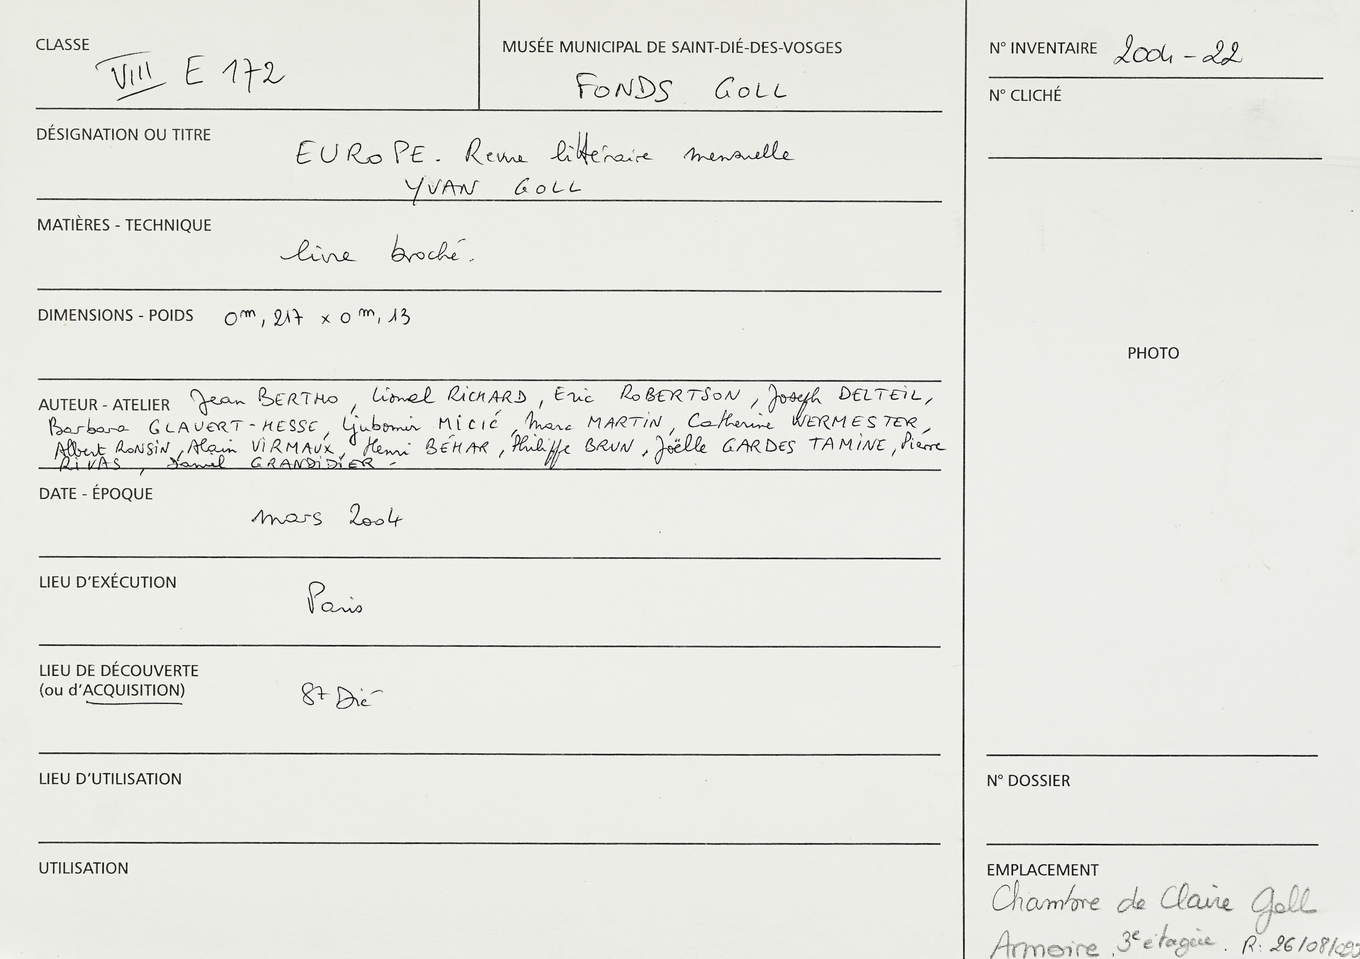 CLASSE
VIII E 172
MUSÉE MUNICIPAL DE SAINT-DIÉ-DES-VOSGES
FONDS GOLL
N° INVENTAIRE 2004-22
N° CLICHÉ
DÉSIGNATION OU TITRE
EUROPE. Revue littéraire mensuelle
YVAN GOLL
MATIÈRES - TECHNIQUE
livre broché.
DIMENSIONS - POIDS 0m, 217 x 0m, 13
PHOTO
AUTEUR - ATELIER Jean BERTHO, Lionel RICHARD, Eric ROBERTSON, Joseph DELTEIL,
Barbara GLAUERT-HESSE, Ljubomir MICIĆ, Marc MARTIN, Catherine WERMESTER,
Albert RONSIN, Alain VIRMAUX, Henri BÉHAR, Philippe BRUN, Joëlle GARDES TAMINE, Pierre
RIVAS, Daniel GRANDIDIER -
DATE - ÉPOQUE
mars 2004
LIEU D'EXÉCUTION
Paris
LIEU DE DÉCOUVERTE
(ou d'ACQUISITION)
St Dié
LIEU D'UTILISATION
N° DOSSIER
UTILISATION
EMPLACEMENT
Chambre de Claire Goll
Armoire 3e étagère. R: 26/08/